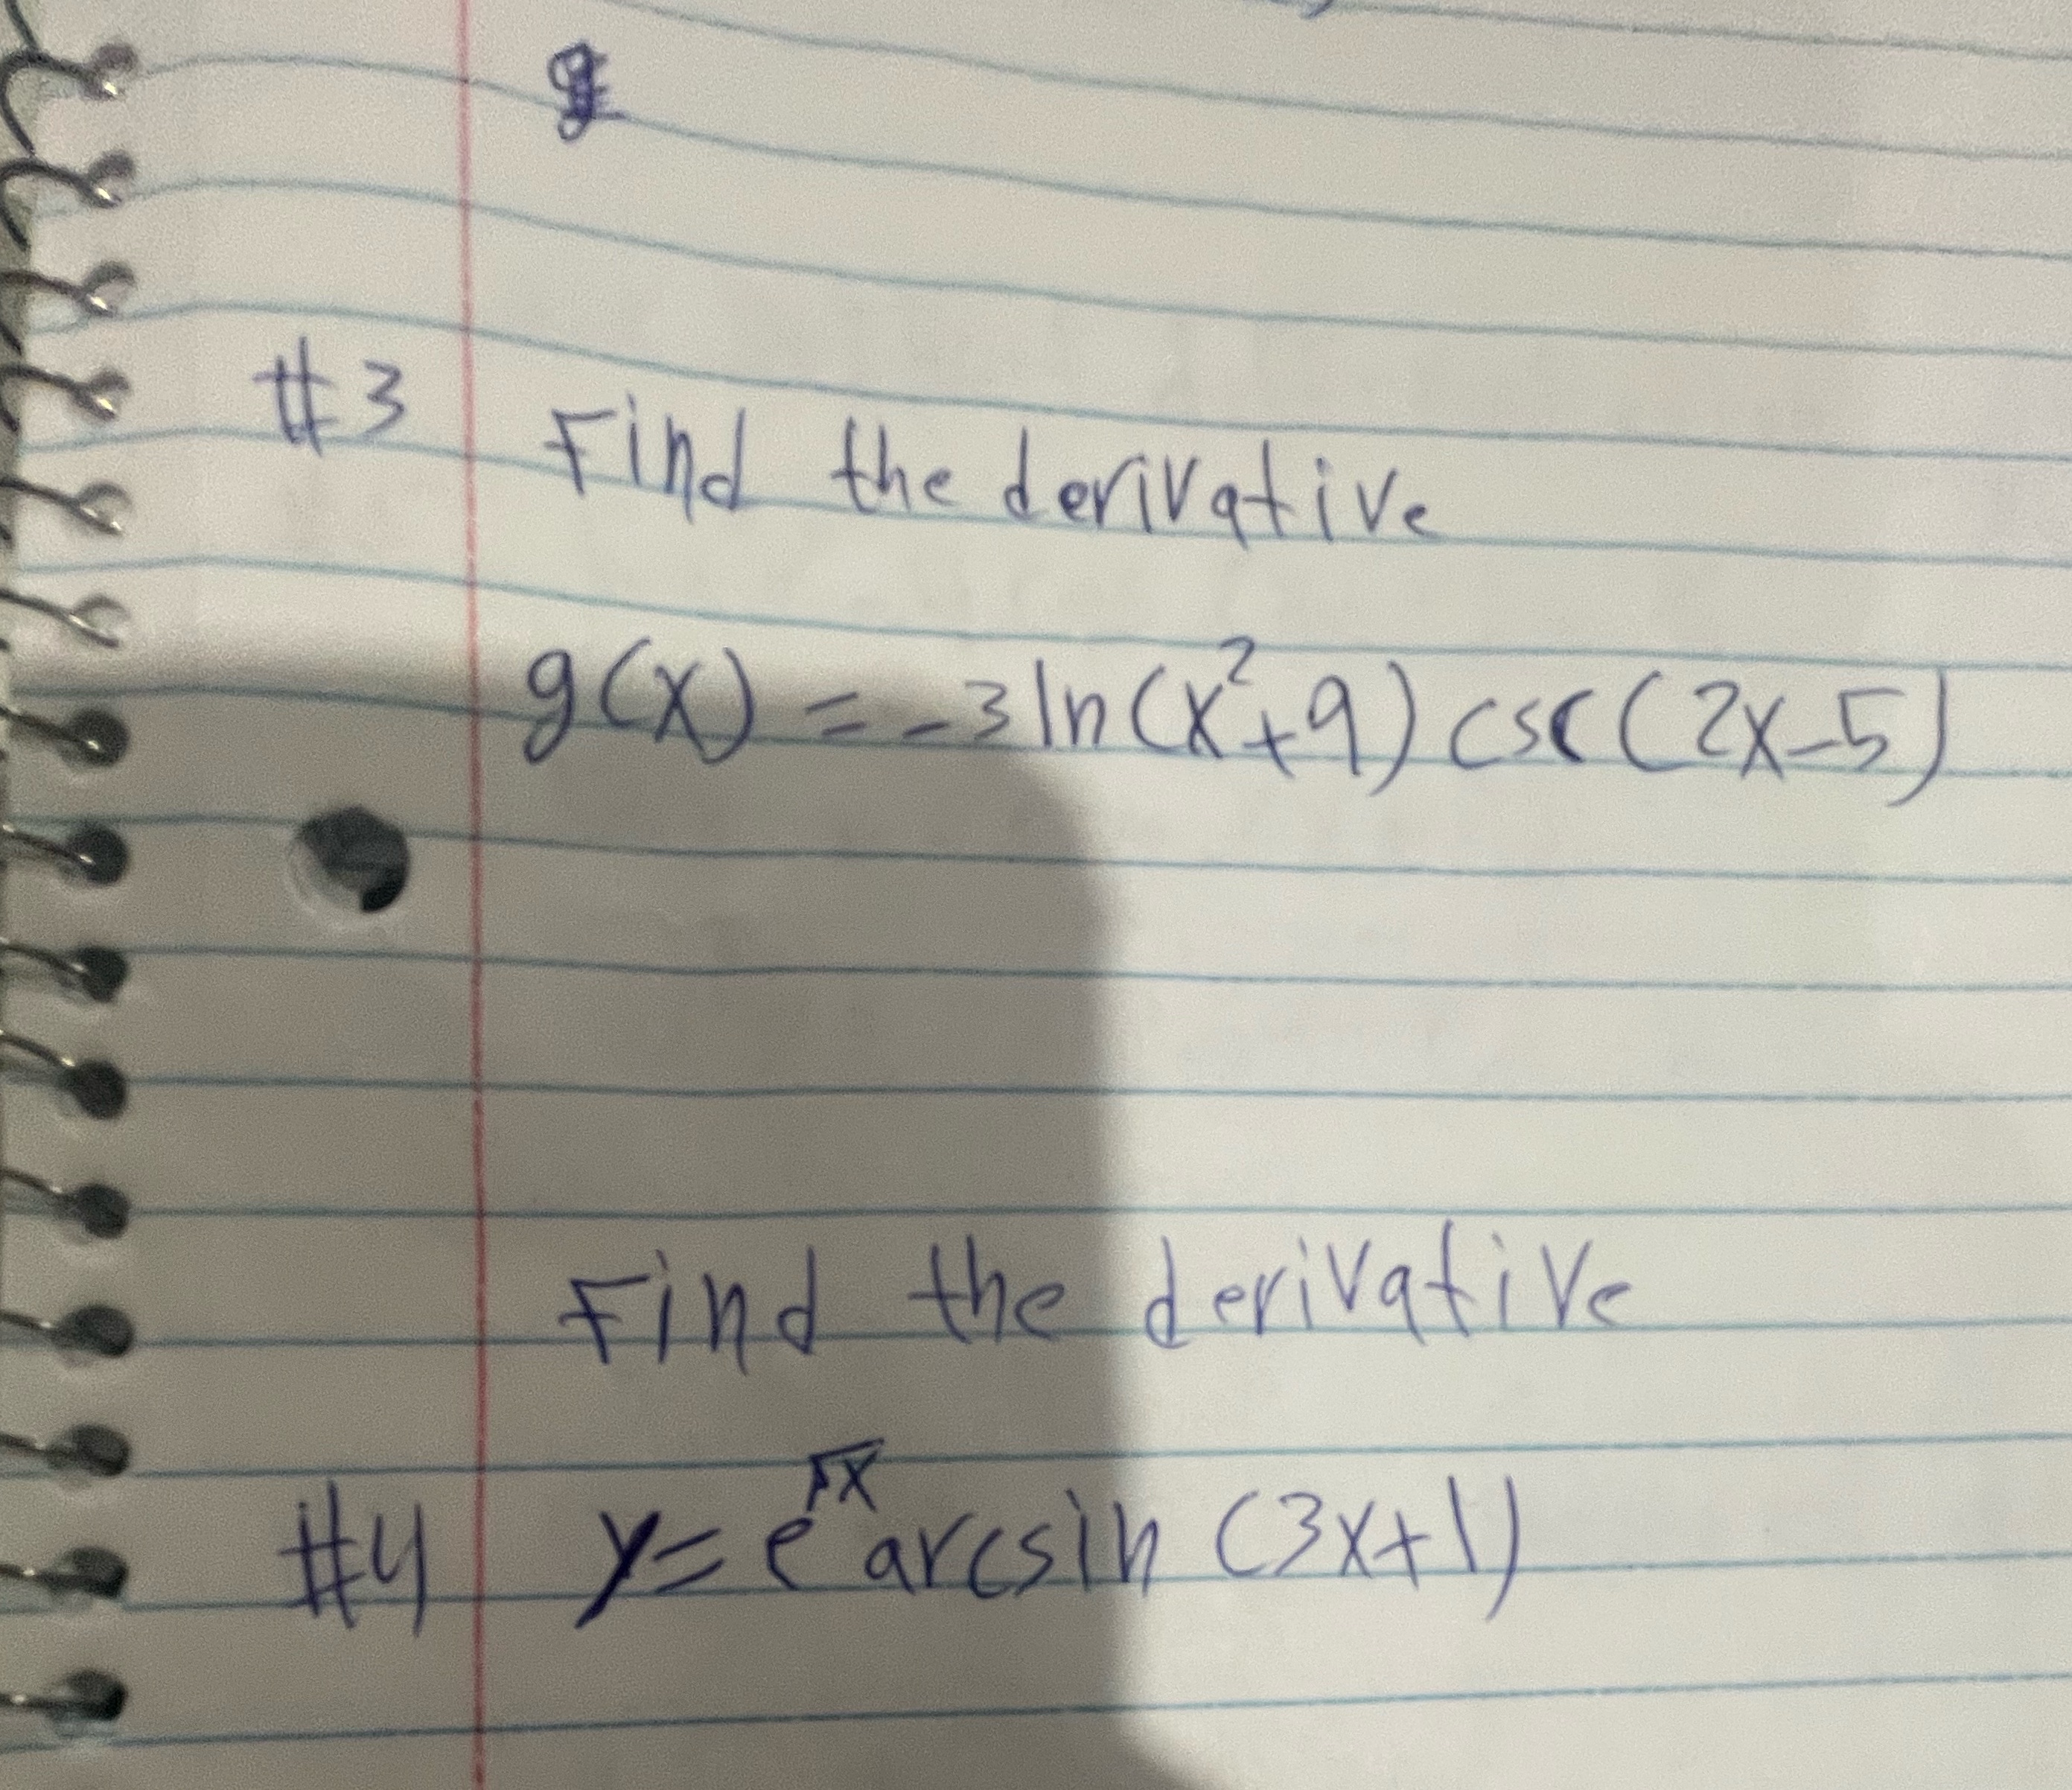 g
#3 Find the derivative
g(x) = -3 ln(x²+9) csc(2x-5)
Find the derivative
#4 y= e^√x arcsin (3x+1)